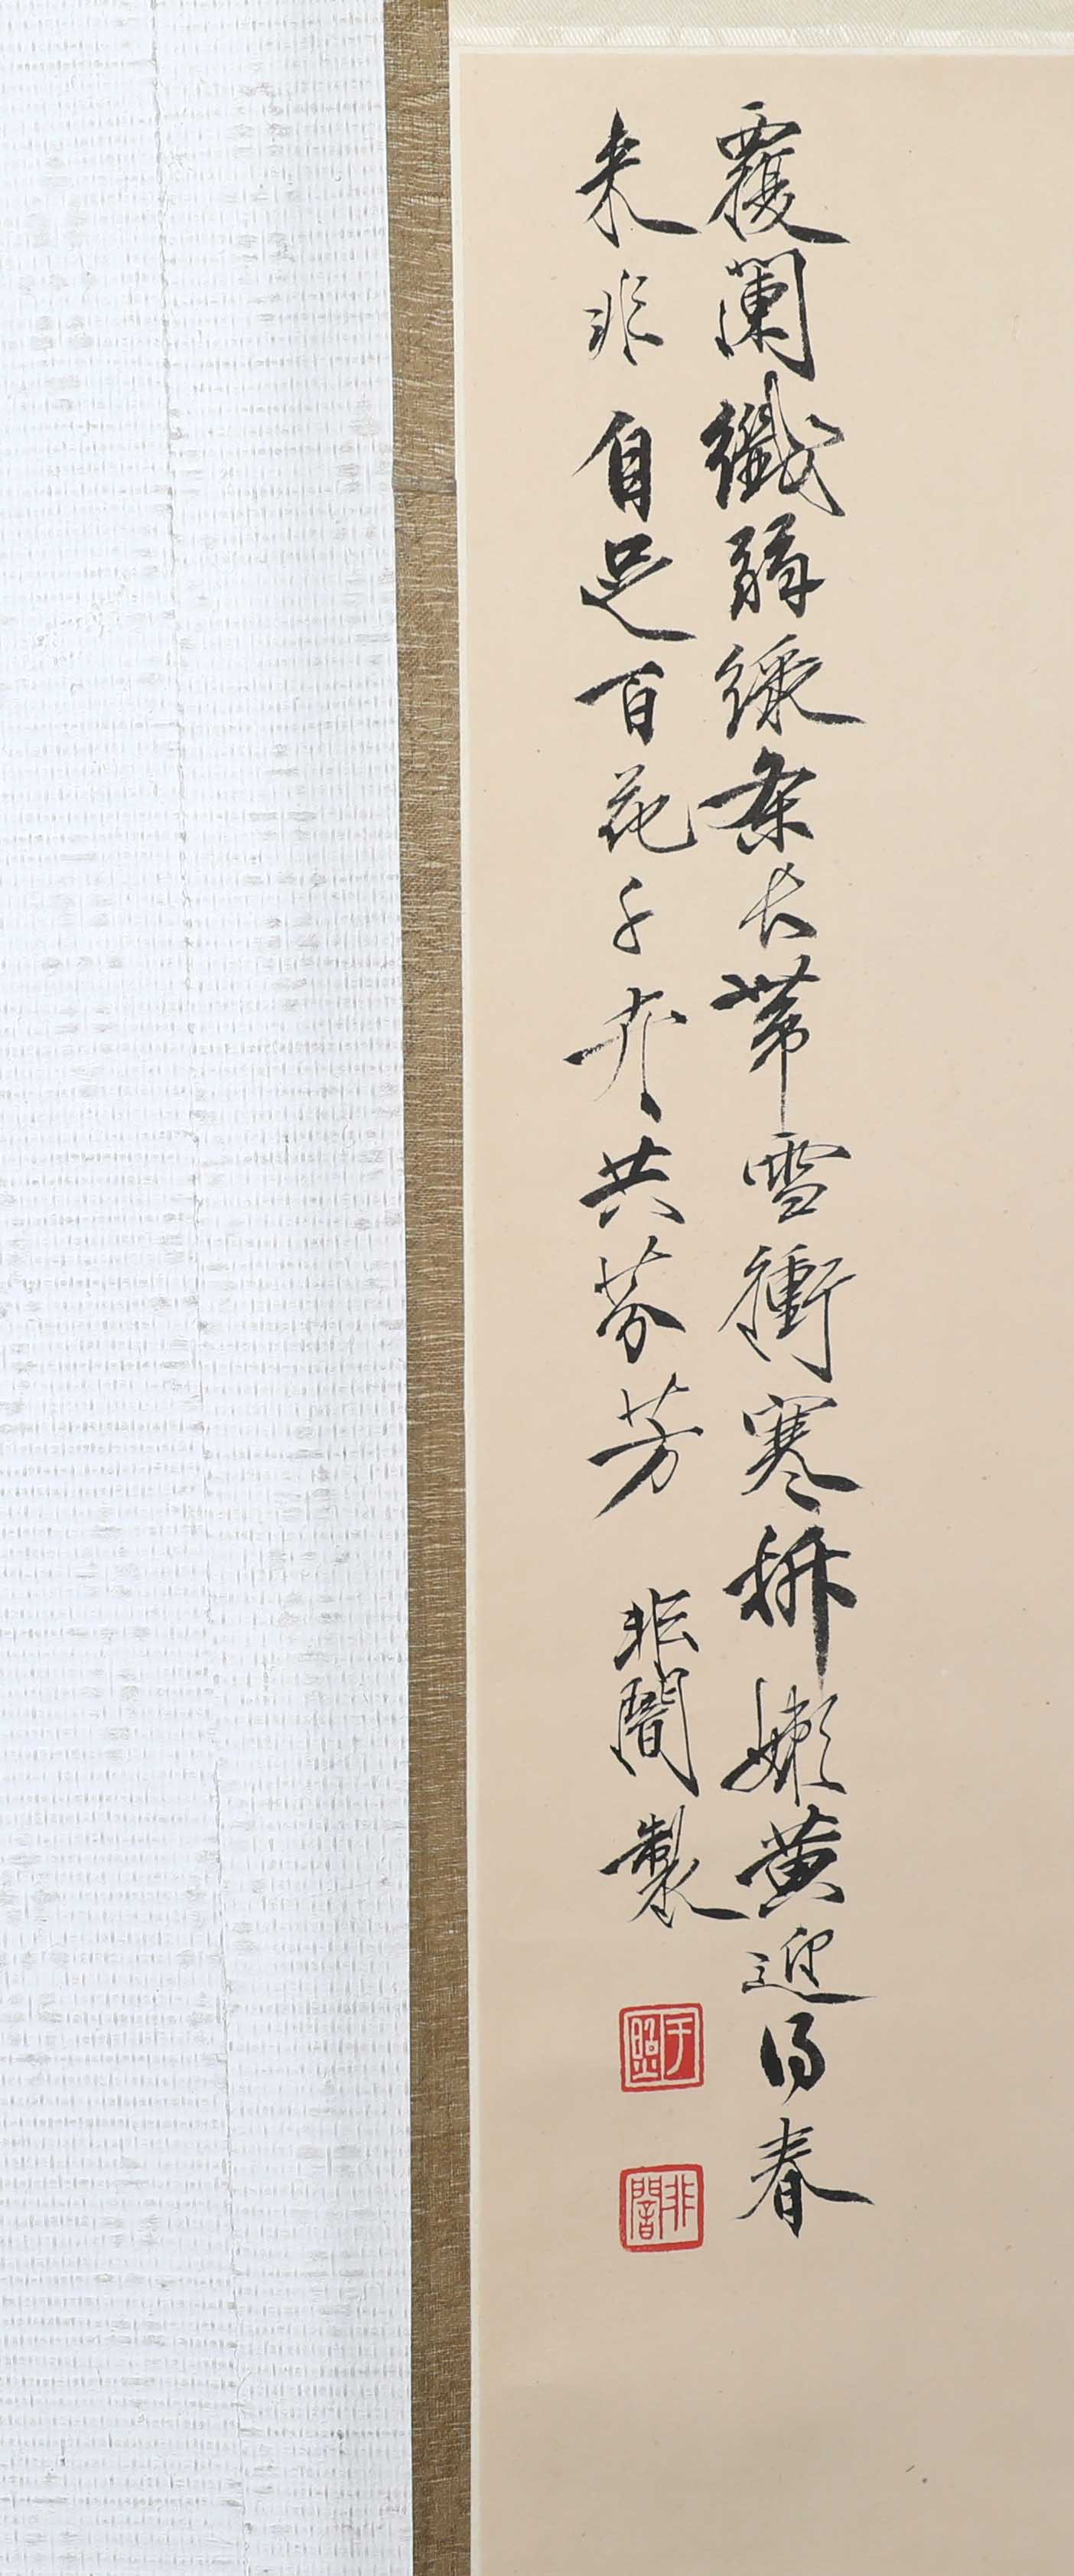 覆闌纖弱綠条长帶雪衝寒折嫩黄迎得春
来非自足百花千卉共芬芳 非闇製
于照
非闇